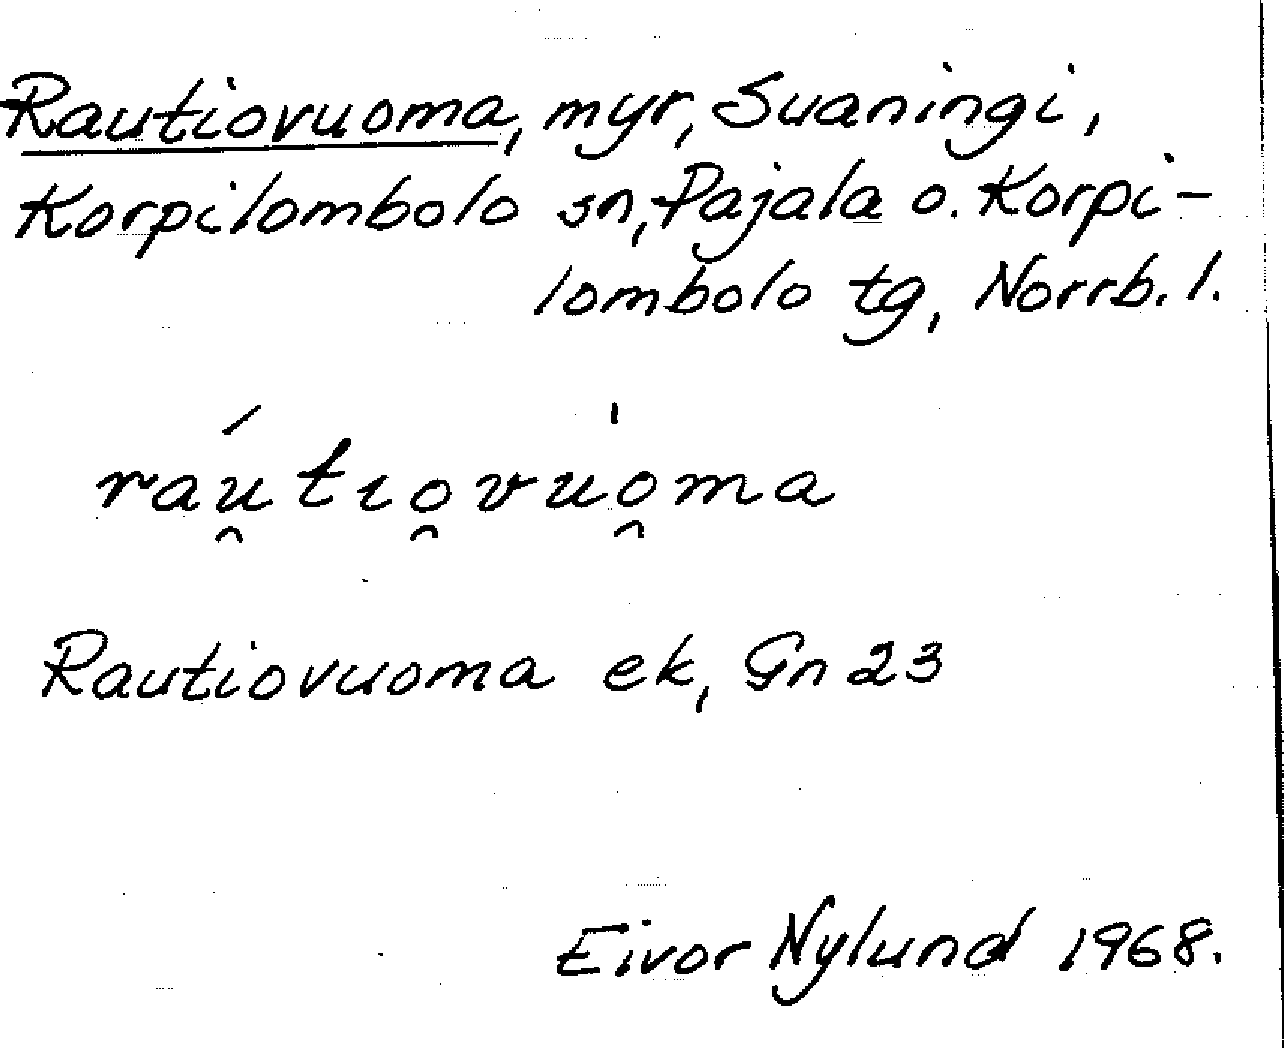 Rautiovuoma, myr, Suaningi,
Korpilombolo sn, Pajala o. Korpi-
lombolo tg, Norrb. l.
ráu̯tıo̯vuo̯̍ma
Rautiovuoma ek, Gn 23
Eivor Nylund 1968.